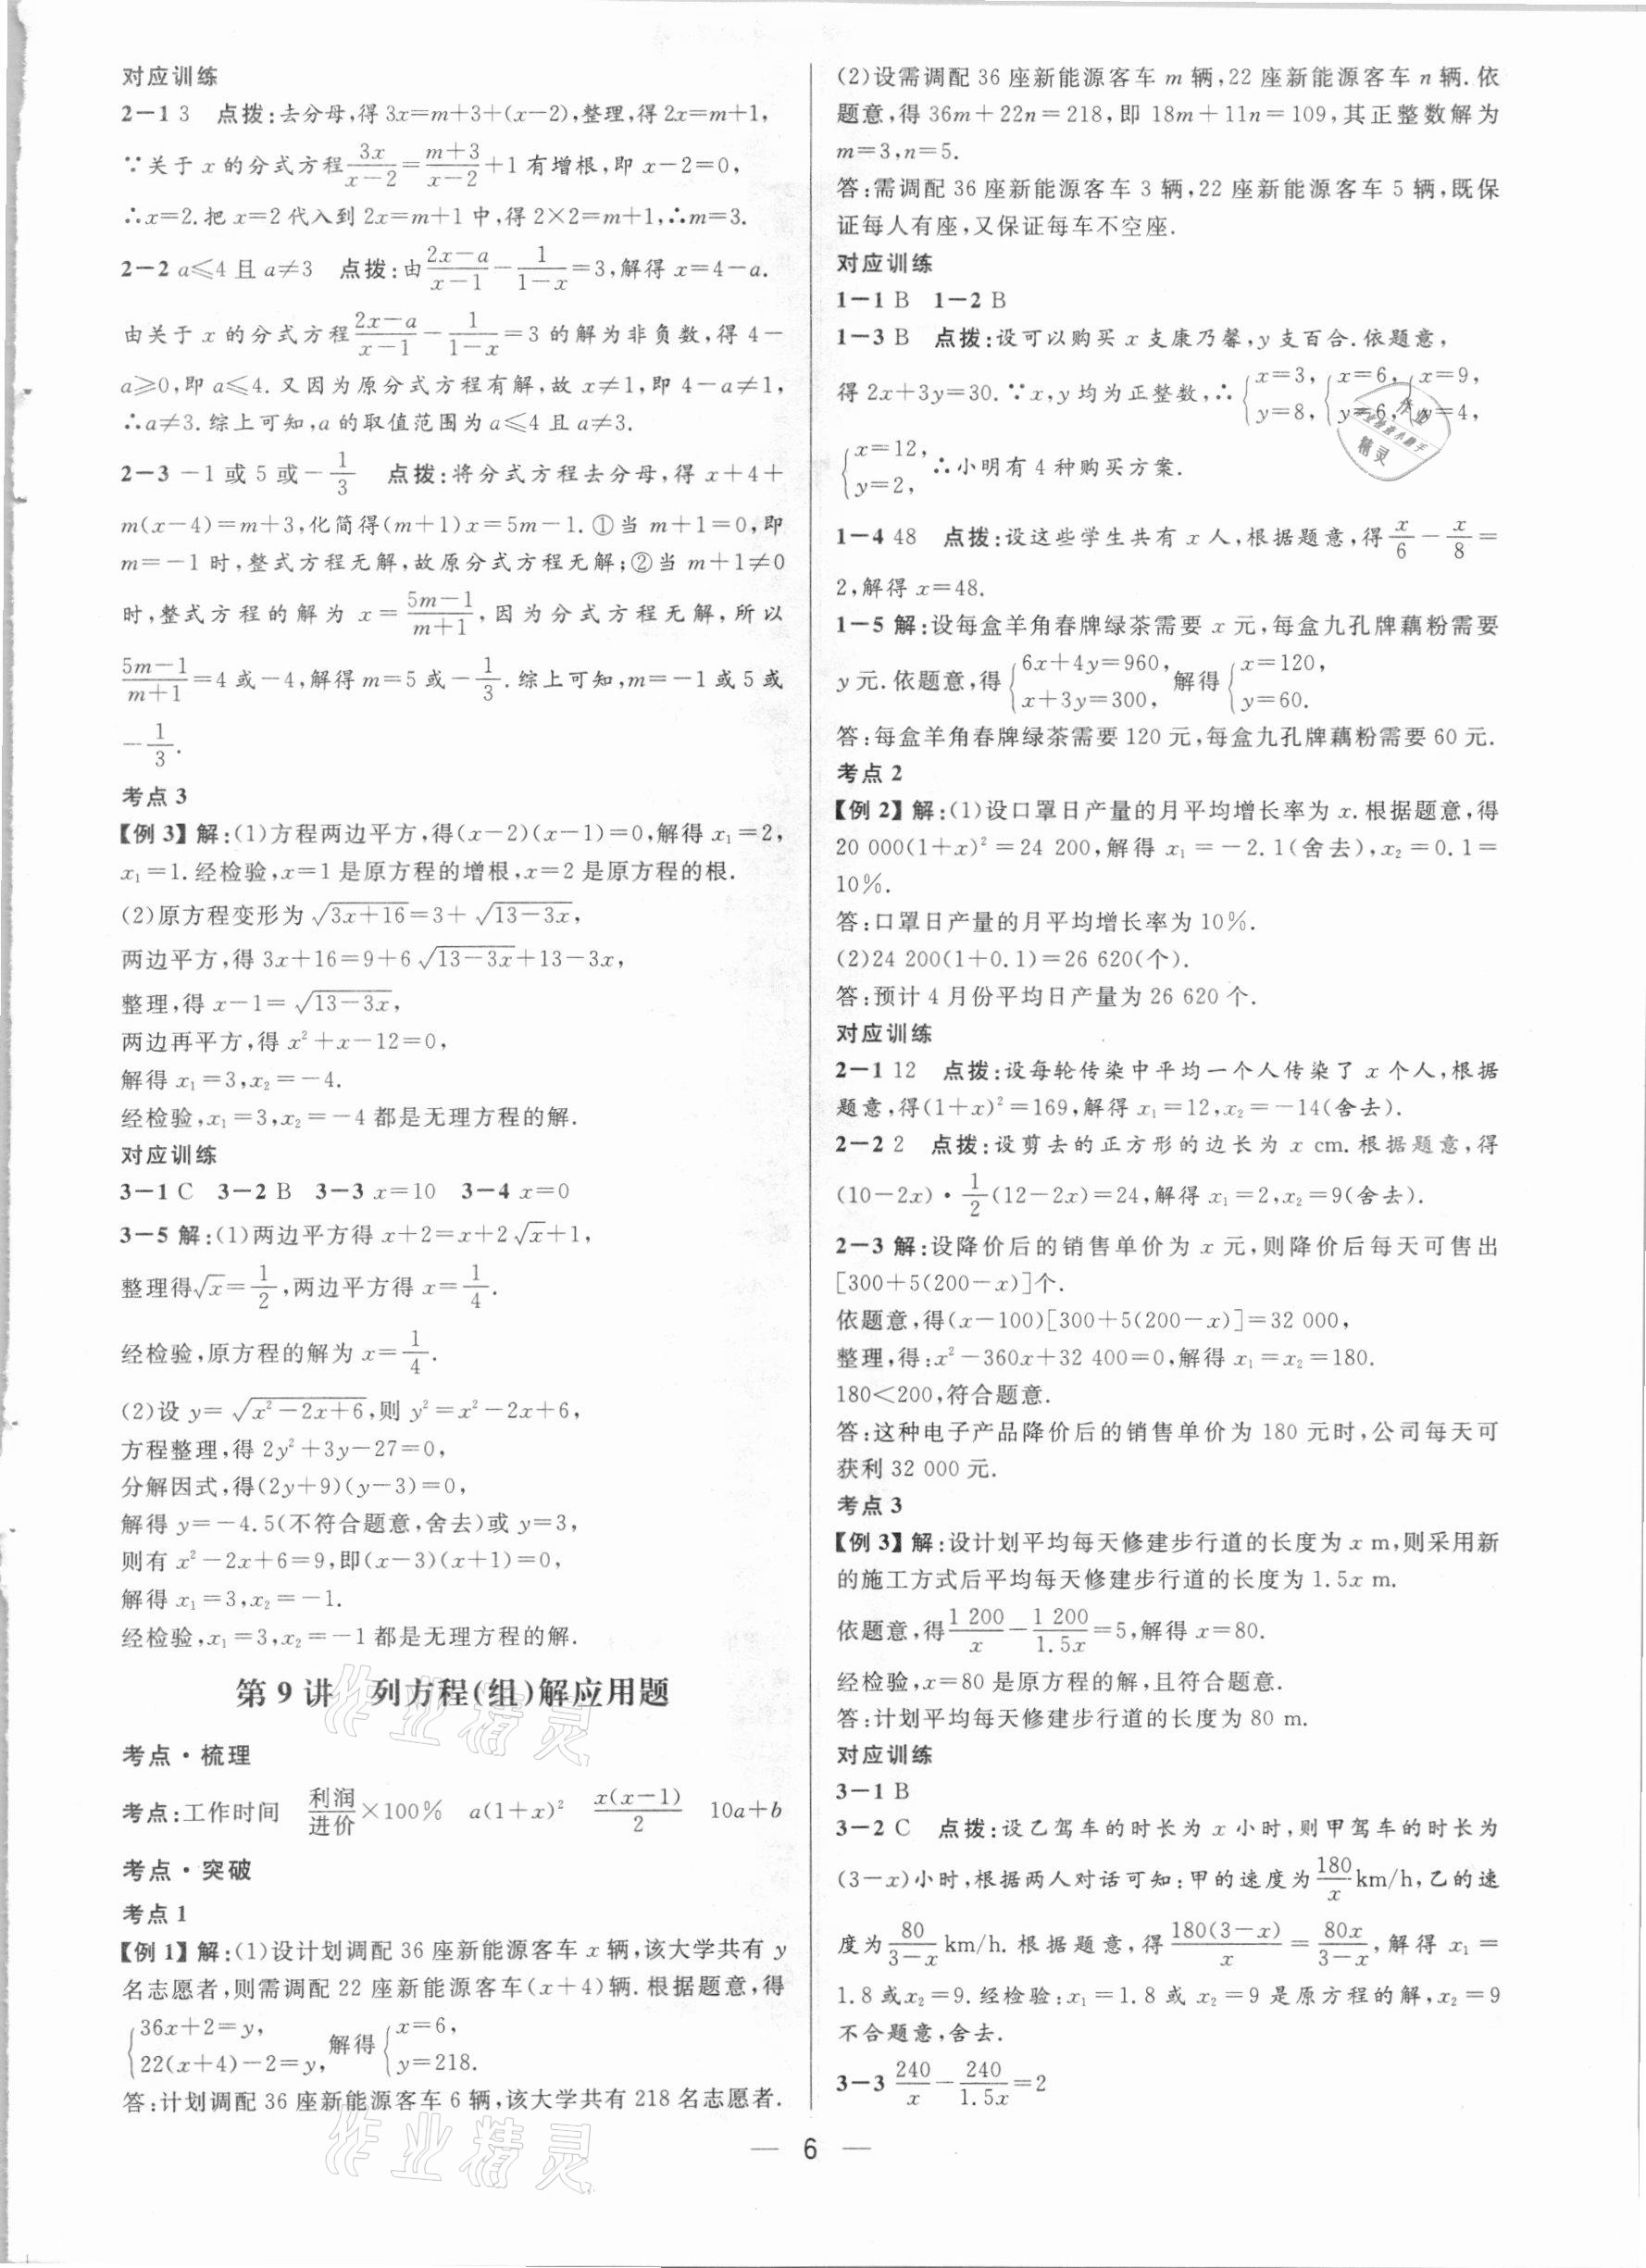 对应训练
2－1 3　点拨:去分母,得3x=m+3+(x-2),整理,得2x=m+1,
∵关于 x 的分式方程3x/(x-2)=(m+3)/(x-2)+1 有增根,即 x-2=0,
∴x=2.把 x=2 代入到 2x=m+1 中,得 2×2=m+1,∴m=3.
2－2 a≤4 且 a≠3　点拨:由(2x-a)/(x-1)-1/(1-x)=3,解得 x=4-a.
由关于 x 的分式方程(2x-a)/(x-1)-1/(1-x)=3 的解为非负数,得 4-
a≥0,即 a≤4.又因为原分式方程有解,故 x≠1,即 4-a≠1,
∴a≠3.综上可知,a 的取值范围为 a≤4 且 a≠3.
2－3 -1 或 5 或-1/3　点拨:将分式方程去分母,得 x+4+
m(x-4)=m+3,化简得(m+1)x=5m-1.①当 m+1=0,即
m=-1 时,整式方程无解,故原分式方程无解;②当 m+1≠0
时,整式方程的解为 x=(5m-1)/(m+1),因为分式方程无解,所以
(5m-1)/(m+1)=4 或-4,解得 m=5 或-1/3.综上可知,m=-1 或 5 或
-1/3.
考点 3
【例 3】解:(1)方程两边平方,得(x-2)(x-1)=0,解得 x₁=2,
x₁=1.经检验,x=1 是原方程的增根,x=2 是原方程的根.
(2)原方程变形为 √(3x+16)=3+√(13-3x),
两边平方,得 3x+16=9+6√(13-3x)+13-3x,
整理,得 x-1=√(13-3x),
两边再平方,得 x²+x-12=0,
解得 x₁=3,x₂=-4.
经检验,x₁=3,x₂=-4 都是无理方程的解.
对应训练
3－1 C　3－2 B　3－3 x=10　3－4 x=0
3－5 解:(1)两边平方得 x+2=x+2√x+1,
整理得√x=1/2,两边平方得 x=1/4.
经检验,原方程的解为 x=1/4.
(2)设 y=√(x²-2x+6),则 y²=x²-2x+6,
方程整理,得 2y²+3y-27=0,
分解因式,得(2y+9)(y-3)=0,
解得 y=-4.5(不符合题意,舍去)或 y=3,
则有 x²-2x+6=9,即(x-3)(x+1)=0,
解得 x₁=3,x₂=-1.
经检验,x₁=3,x₂=-1 都是无理方程的解.
第 9 讲　列方程(组)解应用题
考点·梳理
考点:工作时间　利润/进价×100%　a(1+x)²　x(x-1)/2　10a+b
考点·突破
考点 1
【例 1】解:(1)设计划调配 36 座新能源客车 x 辆,该大学共有 y
名志愿者,则需调配 22 座新能源客车(x+4)辆.根据题意,得
{36x+2=y, 22(x+4)-2=y, 解得{x=6, y=218.
答:计划调配 36 座新能源客车 6 辆,该大学共有 218 名志愿者.
(2)设需调配 36 座新能源客车 m 辆,22 座新能源客车 n 辆.依
题意,得 36m+22n=218,即 18m+11n=109,其正整数解为
m=3,n=5.
答:需调配 36 座新能源客车 3 辆,22 座新能源客车 5 辆,既保
证每人有座,又保证每车不空座.
对应训练
1－1 B　1－2 B
1－3 B　点拨:设可以购买 x 支康乃馨,y 支百合.依题意,
得 2x+3y=30.∵x,y 均为正整数,∴{x=3, y=8, {x=6, y=6, {x=9, y=4,
{x=12, y=2, ∴小明有 4 种购买方案.
1－4 48　点拨:设这些学生共有 x 人,根据题意,得x/6-x/8=
2,解得 x=48.
1－5 解:设每盒羊角春牌绿茶需要 x 元,每盒九孔牌藕粉需要
y 元.依题意,得{6x+4y=960, x+3y=300, 解得{x=120, y=60.
答:每盒羊角春牌绿茶需要 120 元,每盒九孔牌藕粉需要 60 元.
考点 2
【例 2】解:(1)设口罩日产量的月平均增长率为 x.根据题意,得
20 000(1+x)²=24 200,解得 x₁=-2.1(舍去),x₂=0.1=
10%.
答:口罩日产量的月平均增长率为 10%.
(2)24 200(1+0.1)=26 620(个).
答:预计 4 月份平均日产量为 26 620 个.
对应训练
2－1 12　点拨:设每轮传染中平均一个人传染了 x 个人,根据
题意,得(1+x)²=169,解得 x₁=12,x₂=-14(舍去).
2－2 2　点拨:设剪去的正方形的边长为 x cm.根据题意,得
(10-2x)·1/2(12-2x)=24,解得 x₁=2,x₂=9(舍去).
2－3 解:设降价后的销售单价为 x 元,则降价后每天可售出
[300+5(200-x)]个.
依题意,得(x-100)[300+5(200-x)]=32 000,
整理,得:x²-360x+32 400=0,解得 x₁=x₂=180.
180<200,符合题意.
答:这种电子产品降价后的销售单价为 180 元时,公司每天可
获利 32 000 元.
考点 3
【例 3】解:设计划平均每天修建步行道的长度为 x m,则采用新
的施工方式后平均每天修建步行道的长度为 1.5x m.
依题意,得1 200/x-1 200/1.5x=5,解得 x=80.
经检验,x=80 是原方程的解,且符合题意.
答:计划平均每天修建步行道的长度为 80 m.
对应训练
3－1 B
3－2 C　点拨:设乙驾车的时长为 x 小时,则甲驾车的时长为
(3-x)小时,根据两人对话可知:甲的速度为180/x km/h,乙的速
度为80/(3-x) km/h.根据题意,得180(3-x)/x=80x/(3-x),解得 x₁=
1.8 或x₂=9.经检验:x₁=1.8 或 x₂=9 是原方程的解,x₂=9
不合题意,舍去.
3－3 240/x-240/1.5x=2
— 6 —
作业精灵
作业精灵
作业
精灵